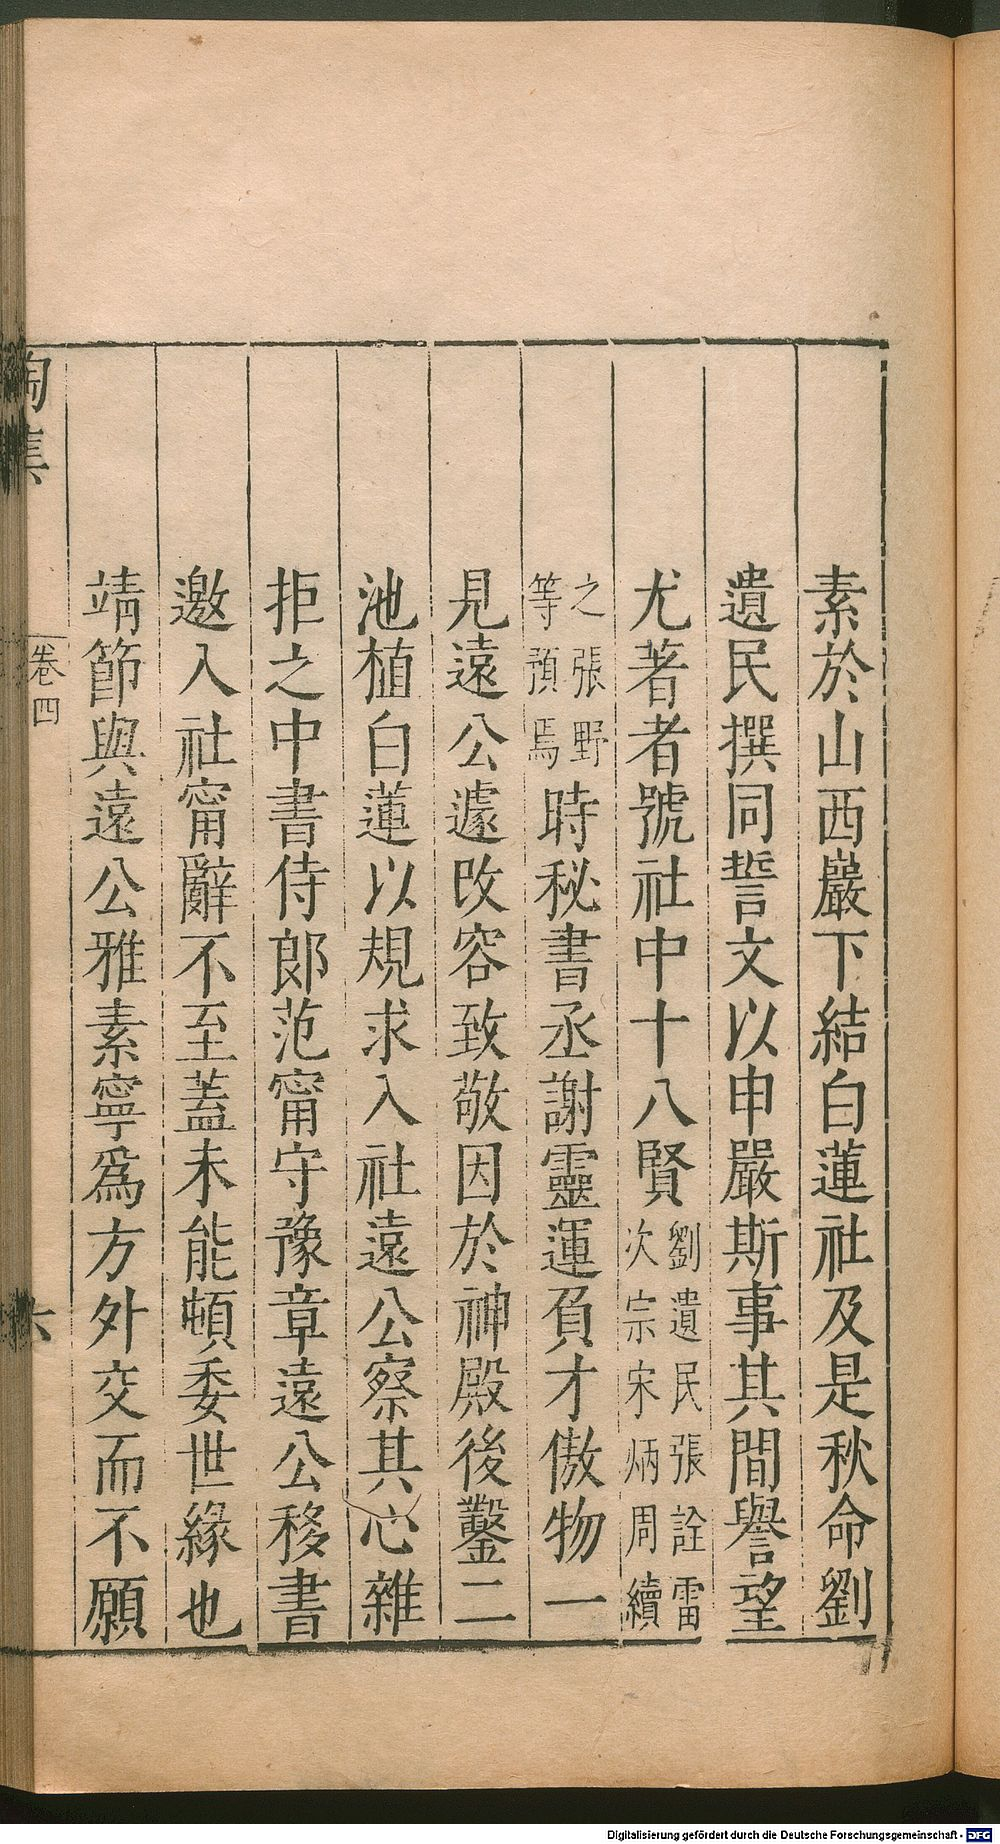 素於山西巖下結白蓮社及是秋命劉
遺民撰同誓文以申嚴斯事其間譽望
尤著者號社中十八賢劉遺民張詮雷
次宗宋炳周續
之張野
等預焉時秘書丞謝靈運負才傲物一
見遠公遽改容致敬因於神殿後鑿二
池植白蓮以規求入社遠公察其心雜
拒之中書侍郎范甯守豫章遠公移書
邀入社甯辭不至蓋未能頓委世緣也
靖節與遠公雅素寧爲方外交而不願
陶集
卷四
六
Digitalisierung gefördert durch die Deutsche Forschungsgemeinschaft - DFG